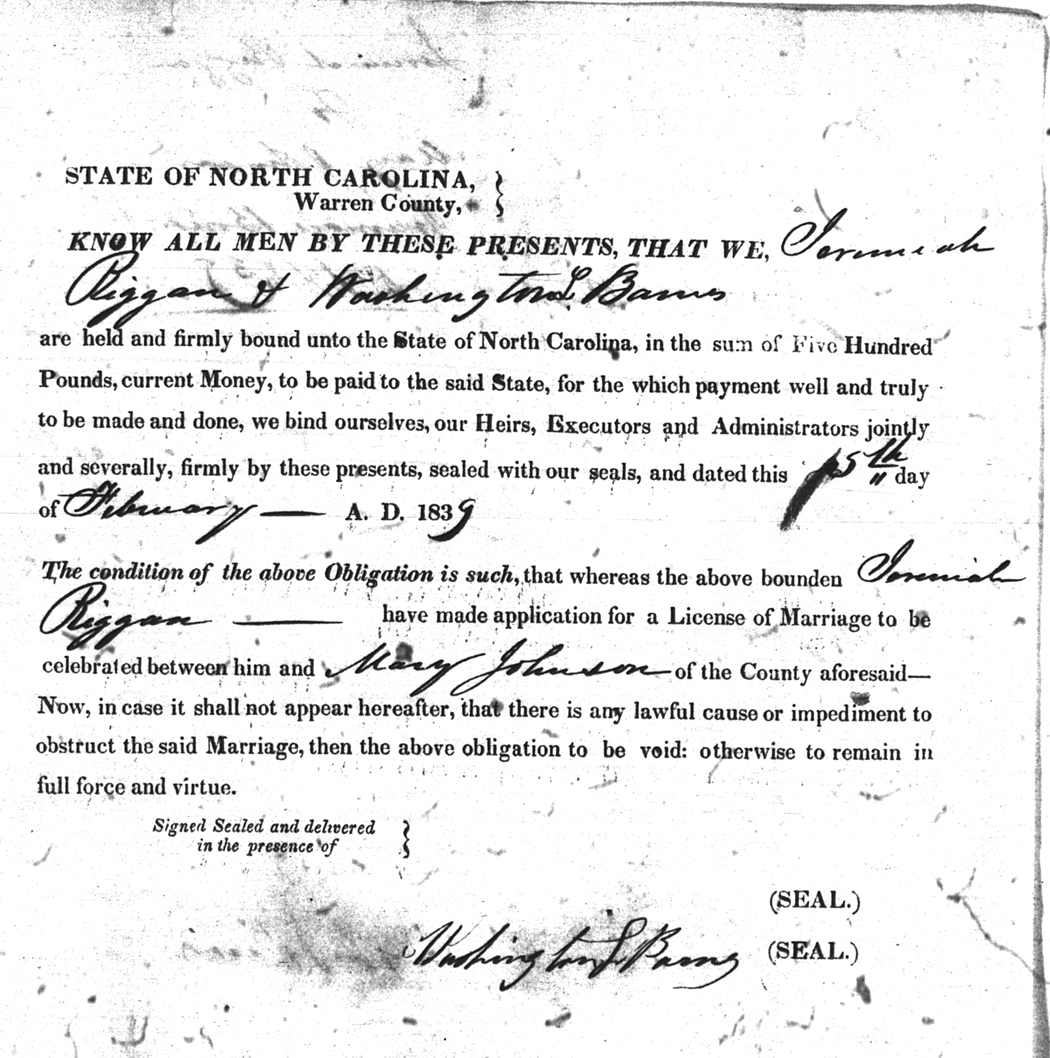 STATE OF NORTH CAROLINA,
Warren County,
KNOW ALL MEN BY THESE PRESENTS, THAT WE, Jeremiah
Riggan & Washington L Barnes
are held and firmly bound unto the State of North Carolina, in the sum of Five Hundred
Pounds, current Money, to be paid to the said State, for the which payment well and truly
to be made and done, we bind ourselves, our Heirs, Executors and Administrators jointly
and severally, firmly by these presents, sealed with our seals, and dated this 15th day
of February — A. D. 1839
The condition of the above Obligation is such, that whereas the above bounden Jeremiah
Riggan — have made application for a License of Marriage to be
celebrated between him and Mary Johnson of the County aforesaid—
Now, in case it shall not appear hereafter, that there is any lawful cause or impediment to
obstruct the said Marriage, then the above obligation to be void: otherwise to remain in
full force and virtue.
Signed Sealed and delivered
in the presence of
(SEAL.)
Washington L Barns (SEAL.)